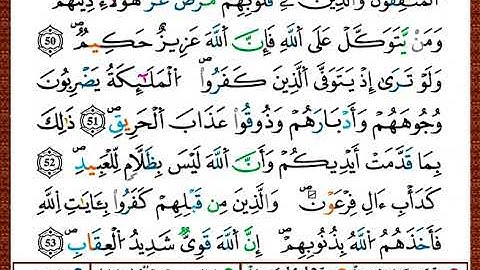 الْمُنَٰفِقُونَ وَالَّذِينَ فِي قُلُوبِهِم مَّرَضٌ غَرَّ هَٰٓؤُلَآءِ دِينُهُمْ
وَمَنْ يَّتَوَكَّلْ عَلَى اللَّهِ فَإِنَّ اللَّهَ عَزِيزٌ حَكِيمٌ ۖ 50
وَلَوْ تَرَىٰ إِذْ يَتَوَفَّى الَّذِينَ كَفَرُوا ۖ الْمَلَٰٓئِكَةُ يَضْرِبُونَ
وُجُوهَهُمْ وَأَدْبَارَهُمْ وَذُوقُوا عَذَابَ الْحَرِيقِ ۖ 51 ذَٰلِكَ
بِمَا قَدَّمَتْ أَيْدِيكُمْ وَأَنَّ اللَّهَ لَيْسَ بِظَلَّٰمٍ لِّلْعَبِيدِ ۖ 52
كَدَأْبِ ءَالِ فِرْعَوْنَ ۖ وَالَّذِينَ مِن قَبْلِهِمْ كَفَرُوا بِـَٔايَٰتِ اللَّهِ
فَأَخَذَهُمُ اللَّهُ بِذُنُوبِهِمْ ۖ إِنَّ اللَّهَ قَوِيٌّ شَدِيدُ الْعِقَابِ ۖ 53